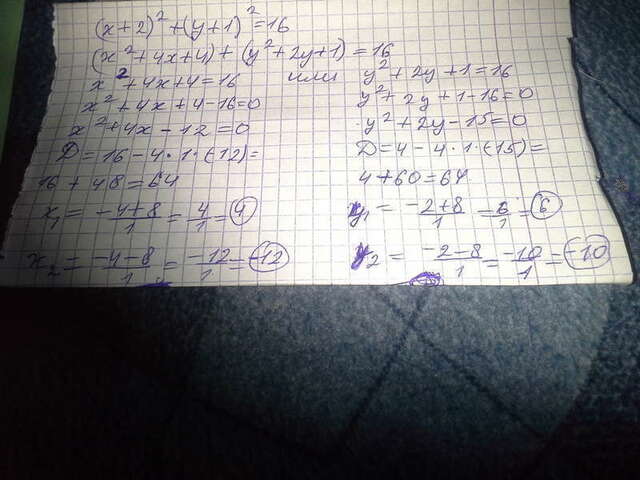 (x+2)²+(y+1)²=16
(x²+4x+4)+(y²+2y+1)=16
x²+4x+4=16 или y²+2y+1=16
x²+4x+4-16=0 y²+2y+1-16=0
x²+4x-12=0 y²+2y-15=0
D=16-4·1·(-12)= D=4-4·1·(-15)=
16+48=64 4+60=64
x₁= -4+8/1 = 4/1 = 4 y₁= -2+8/1 = 6/1 = 6
x₂= -4-8/1 = -12/1 = -12 y₂= -2-8/1 = -10/1 = -10